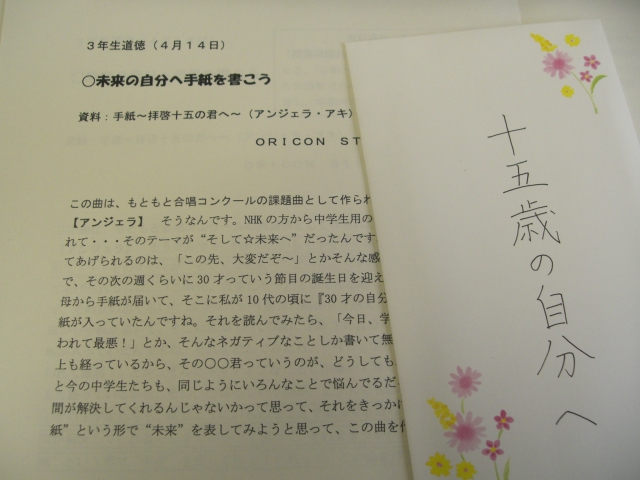 ３年生道徳（４月１４日）
○未来の自分へ手紙を書こう
資料：手紙～拝啓十五の君へ～（アンジェラ・アキ）
ＯＲＩＣＯＮ ＳＴ
この曲は、もともと合唱コンクールの課題曲として作られ
【アンジェラ】 そうなんです。NHKの方から中学生用の
れて・・・そのテーマが“そして☆未来へ”だったんです
てあげられるのは、「この先、大変だぞ～」とかそんな感
で、その次の週くらいに30才っていう節目の誕生日を迎え
母から手紙が届いて、そこに私が10代の頃に『30才の自分
紙が入っていたんですね。それを読んでみたら、「今日、学
われて最悪！」とか、そんなネガティブなことしか書いて無
上も経っているから、その○○君っていうのが、どうしても
と今の中学生たちも、同じようにいろんなことで悩んでるだ
間が解決してくれるんじゃないかって思って、それをきっか
紙”という形で“未来”を表してみようと思って、この曲を
十五歳の自分へ